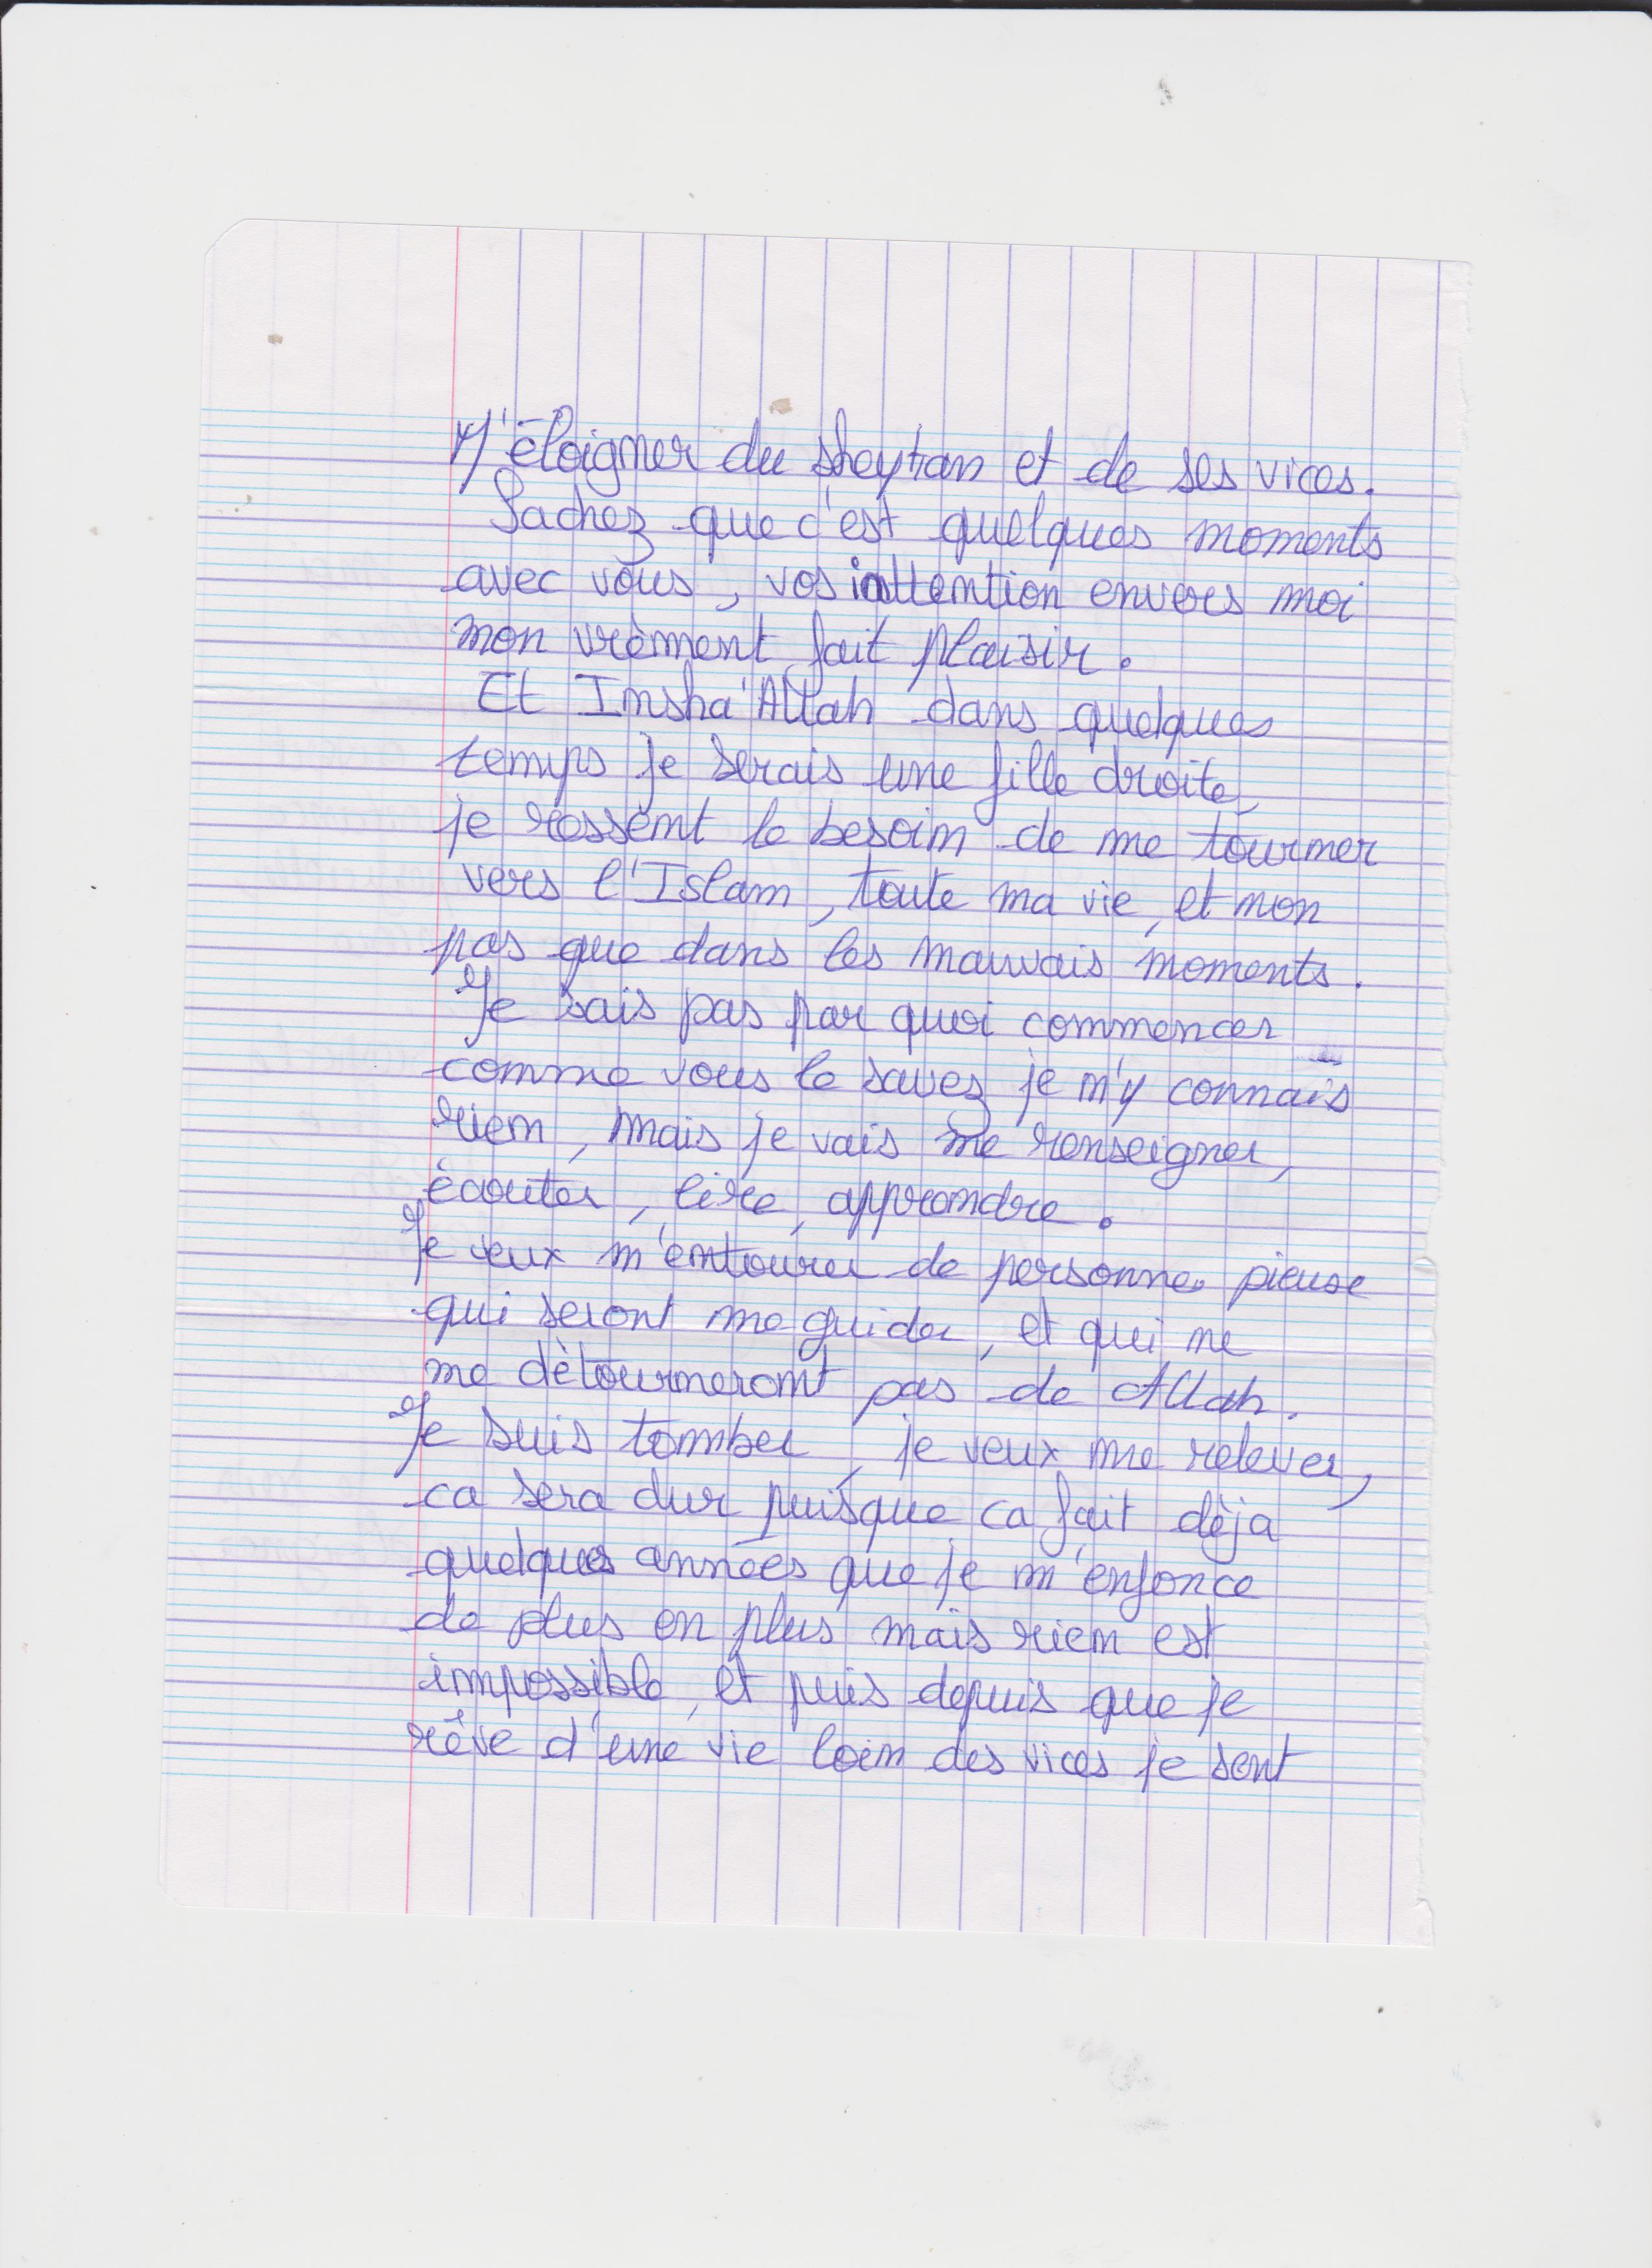 M'éloigner du sheytan et de ses vices.
Sachez que c'est quelques moments
avec vous, vos inttention envers moi
mon vrèment fait plaisir.
Et Insha'Allah dans quelques
temps je serais une fille droite,
je ressent le besoin de me tourner
vers l'Islam, toute ma vie, et non
pas que dans les mauvais moments.
Je sais pas par quoi commencer
comme vous le savez je m'y connais
rien, mais je vais me renseigner,
écouter, lire, apprendre.
Je veux m'entourer de personnes pieuse
qui seront me guider, et qui ne
me détourneront pas de Allah.
Je suis tomber, je veux me relever,
ca sera dur puisque ca fait déja
quelques années que je m'enfonce
de plus en plus mais rien est
impossible, et puis depuis que je
rêve d'une vie loin des vices je sent